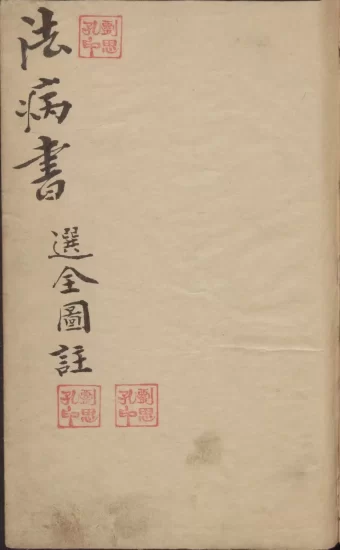 法病書
選全圖註
劉思孔印
劉思孔印
劉思孔印